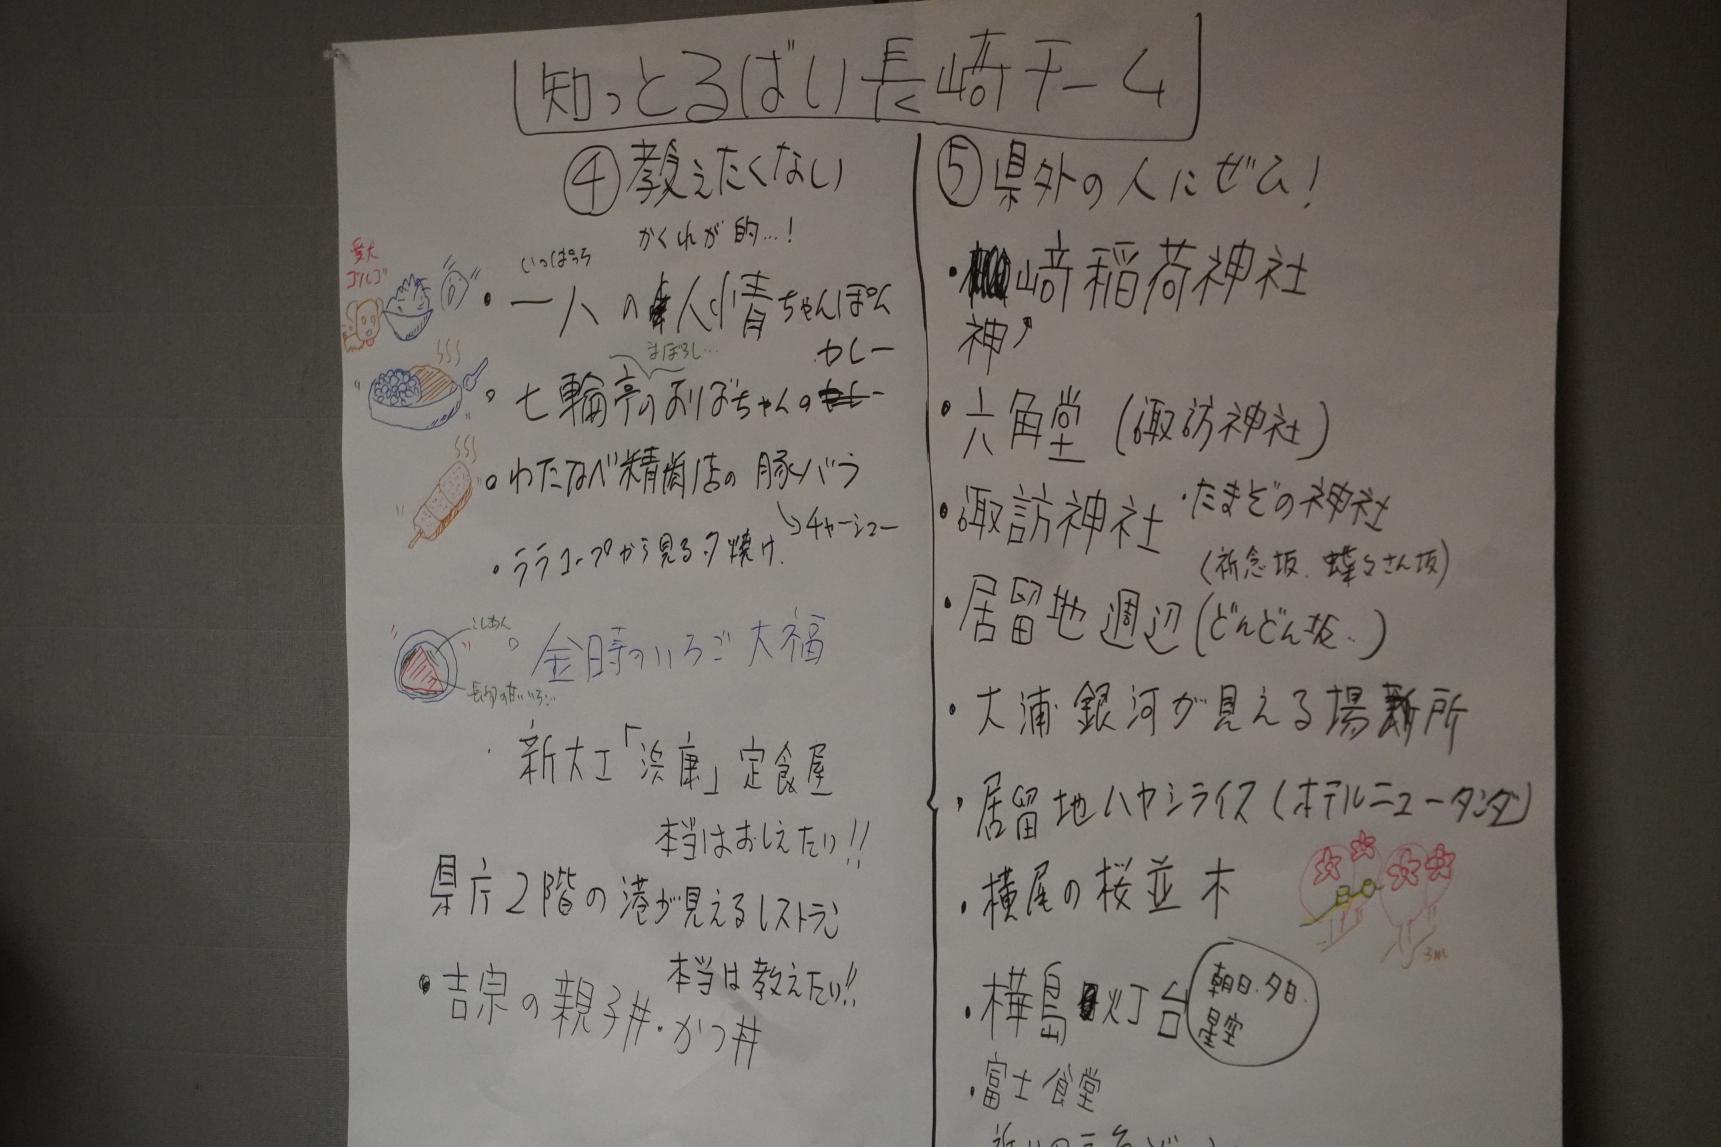 知っとるばい長崎チーム
④教えたくない
かくれが的…!
愛犬
ゴルゴ
いっぱち
・一八の人情ちゃんぽん
まぼろし…
カレー
・七輪亭のおばちゃんの
・わたなべ精肉店の豚バラ
→チャーシュー
・ララコープから見る夕焼け
こしあん
・金時のいちご大福
・新大工「浜庫」定食屋
本当はおしえたい!!
県庁2階の港が見えるレストラン
本当は教えたい!!
・吉宗の親子丼・かつ丼
⑤県外の人にぜひ!
・﨑稲荷神社
神
・六角堂(諏訪神社)
・諏訪神社
・たまぞの神社
(祈念坂、蝶々さん坂)
・居留地週辺(どんどん坂、)
・大浦 銀河が見える場所
・居留地ハヤシライス(ホテルニュータンダ)
・横尾の桜並木
・樺島灯台
朝日・夕日・
星空
・富士食堂